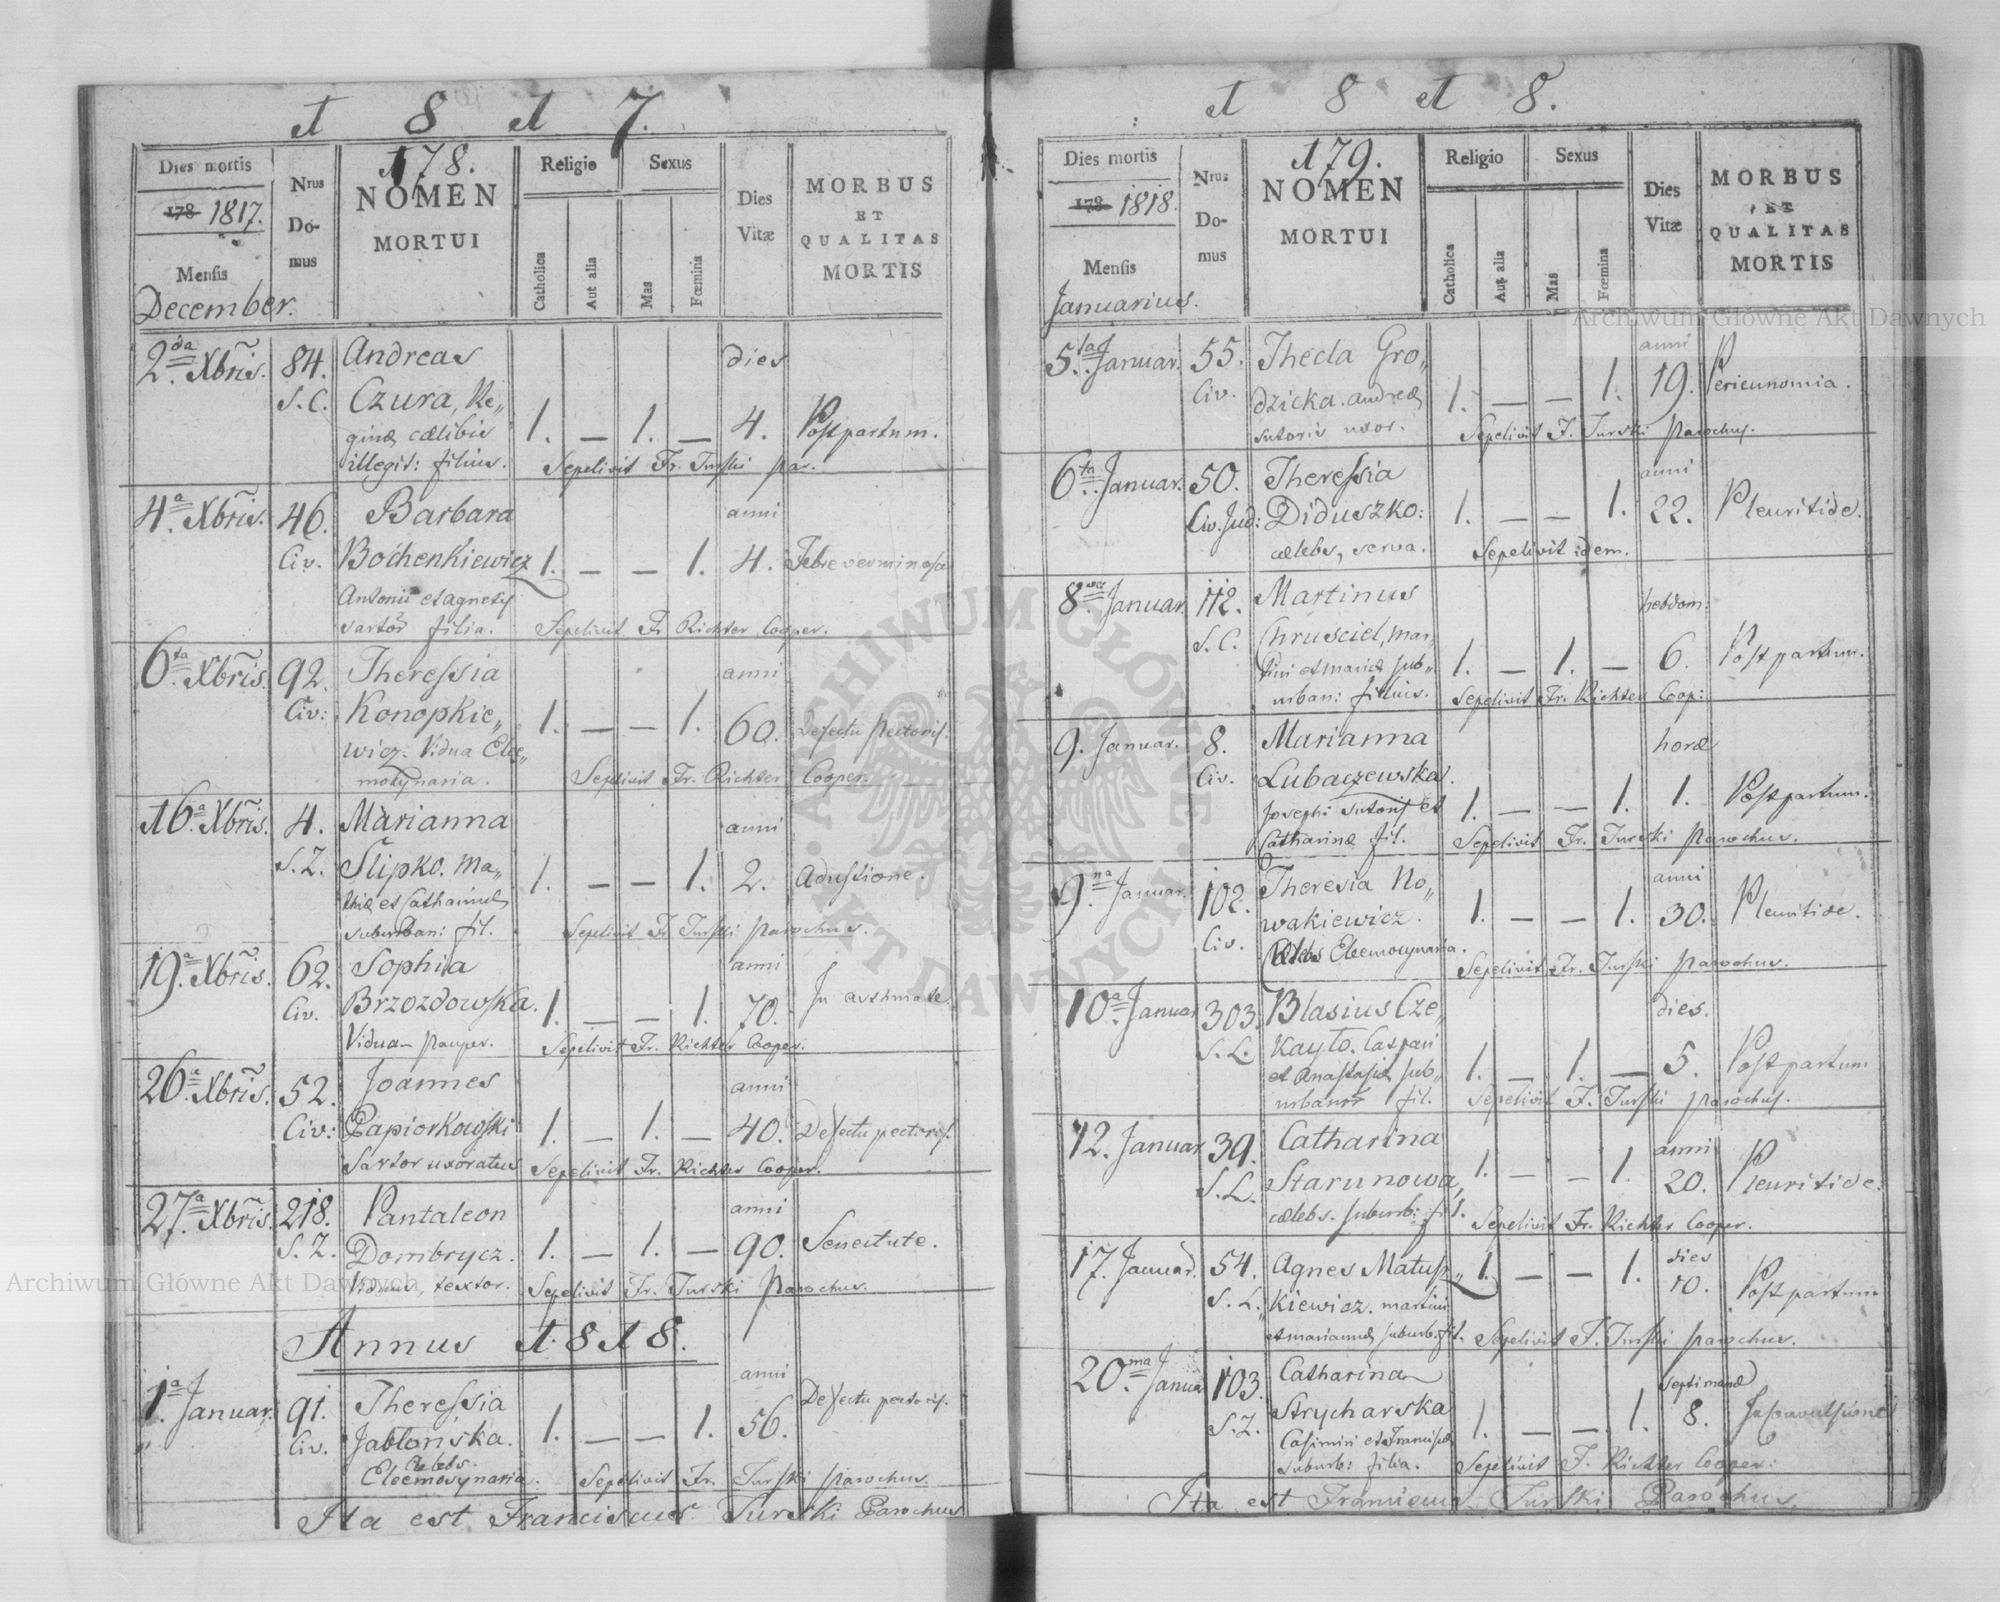 1 8 1 7.
178.
Dies mortis
178 1817.
Mensis
December.
Nrus
Do-
mus
NOMEN
MORTUI
Religio
Catholica
Aut alia
Sexus
Mas
Fœmina
Dies
Vitæ
MORBUS
ET
QUALITAS
MORTIS
2da Xbris. 84. Andreas dies
S.C. Czura, Re„
ginæ cælibis 1. — 1. — 4. Post partum.
illegit: filius. Sepelivit Fr. Turski par.
4.a Xbris. 46. Barbara anni
Civ. Bochenkiewicz 1. — — 1. 4. Febre verminosa
Antonii et Agnetis
sartor filia. Sepelivit Fr Richter Cooper.
6.ta Xbris. 92. Theressia anni
Civ: Konopkie„ 1. — — 1. 60. Defectu pectoris.
wicz. Vidua Elee„
mosynaria. Sepelivit Fr. Richter Cooper.
16.a Xbris. 4. Marianna anni
S.Z. Slipko. Ma„ 1. — — 1. 2. Adustione.
thiæ et Catharinæ
suburban: fil. Sepelivit Fr Turski parochus.
19.a Xbris. 62. Sophia anni
Civ. Brzozdowska. 1. — — 1. 70. In asthmate.
Vidua pauper. Sepelivit Fr. Richter Cooper.
26.a Xbris. 52. Joannes anni
Civ: Papiorkowski 1. — 1. — 40. Defectu pectoris.
Sartor uxoratus Sepelivit Fr. Richter Cooper.
27.a Xbris. 218. Pantaleon anni
S.Z. Dombrycz. 1. — 1. — 90. Senectute.
Viduus, textor. Sepelivit Fr. Turski Parochus.
Annus 1818.
1.a Januar. 91. Theressia anni
Civ. Jabłonska. 1. — — 1. 56. Defectu pectoris.
Cælebs.
Eleemosynaria. Sepelivit Fr. Turski parochus
Ita est Franciscus Turski Parochus
1 8 1 8.
179.
Dies mortis
178 1818.
Mensis
Januarius.
Nrus
Do-
mus
NOMEN
MORTUI
Religio
Catholica
Aut alia
Sexus
Mas
Fœmina
Dies
Vitæ
MORBUS
ET
QUALITAS
MORTIS
5.ta Januar. 55. Thecla Gro„ anni
Civ. dzicka. Andreæ 1. — — 1. 19.
sutoris uxor. Sepelivit F. Turski parochus.
6ta Januar. 50. Theressia anni
Civ. Jud: Diduszko: 1. — — 1. 22. Pleuritide.
cælebs, serva. Sepelivit idem.
8.va Januar. 112. Martinus hebdom:
S.C. Chrusciel, Mar„ 1. — 1. — 6. Post partum.
tini et Mariæ sub„
urban: filius. Sepelivit Fr. Richter Coop:
9. Januar. 8. Marianna horæ
Civ. Lubaczewska. 1. — — 1. 1. Post partum.
Josephi sutoris et
Catharinæ fil. Sepelivit Fr. Turski parochus.
9.na Januar. 102. Theresia No„ anni
Civ. wakiewicz. 1. — — 1. 30. Pleuritide.
Cælebs Eleemosynaria. Sepelivit Fr. Turski parochus.
10.a Januar 303. Blasius Cze„ dies.
S.L. kayło. Caspari 1. — 1. — 5. Post partum
et Anastasiæ sub„
urbanor fil. Sepelivit F. Turski parochus.
12. Januar 39. Catharina anni
S.L. Starunowa, 1. — — 1. 20. Pleuritide.
cælebs. suburb: fil. Sepelivit Fr. Richter Cooper.
17. Januar. 54. Agnes Matusz„ 1. — — 1. dies 10. Post partum
S.L. kiewicz. Martini
et Mariannæ suburb. fil. Sepelivit F. Turski parochus.
20.ma Januar 103. Catharina septimanæ
S.Z. Strycharska 1. — — 1. 8.
Casimiri et Franciscæ
suburb: filia. Sepelivit F. Richter Cooper:
Ita est Franciscus Turski Parochus.
Archiwum Główne Akt Dawnych
Archiwum Główne Akt Dawnych
ARCHIWUM GŁÓWNE AKT DAWNYCH